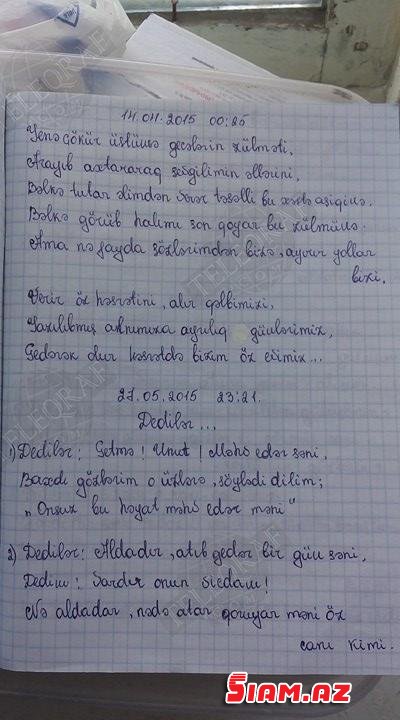 14.04.2015 00:25
Yenə çökür üstümə gecələrin zülməti,
Arayıb axtararaq sevgilimin əllərini,
Bəlkə tutar əlimdən verər təsəlli bu xəstə aşiqinə.
Bəlkə görüb halımı son qoyar bu zülmünə.
Ama nə fayda sözlərimdən bizə, ayırır yollar
bizi,
Verir öz həsrətini, alır qəlbimizi,
Yazılıbmış alnımıza ayrılıq günlərimiz,
Gedərək olur həsrətdə bizim öz evimiz...
27.05.2015 23:21.
Dedilər...
1) Dedilər: Getmə! Unut! Məhv edər səni,
Baxdı gözlərim o üzlərə, söylədi dilim;
„Onsuz bu həyat məhv edər məni"
2) Dedilər: Aldadır, atıb gedər bir gün səni,
Dedim: Vardır onun vicdanı!
Nə aldadar, nədə atar qoruyar məni öz
canı kimi.
TELEQRAF
SİAM.AZ